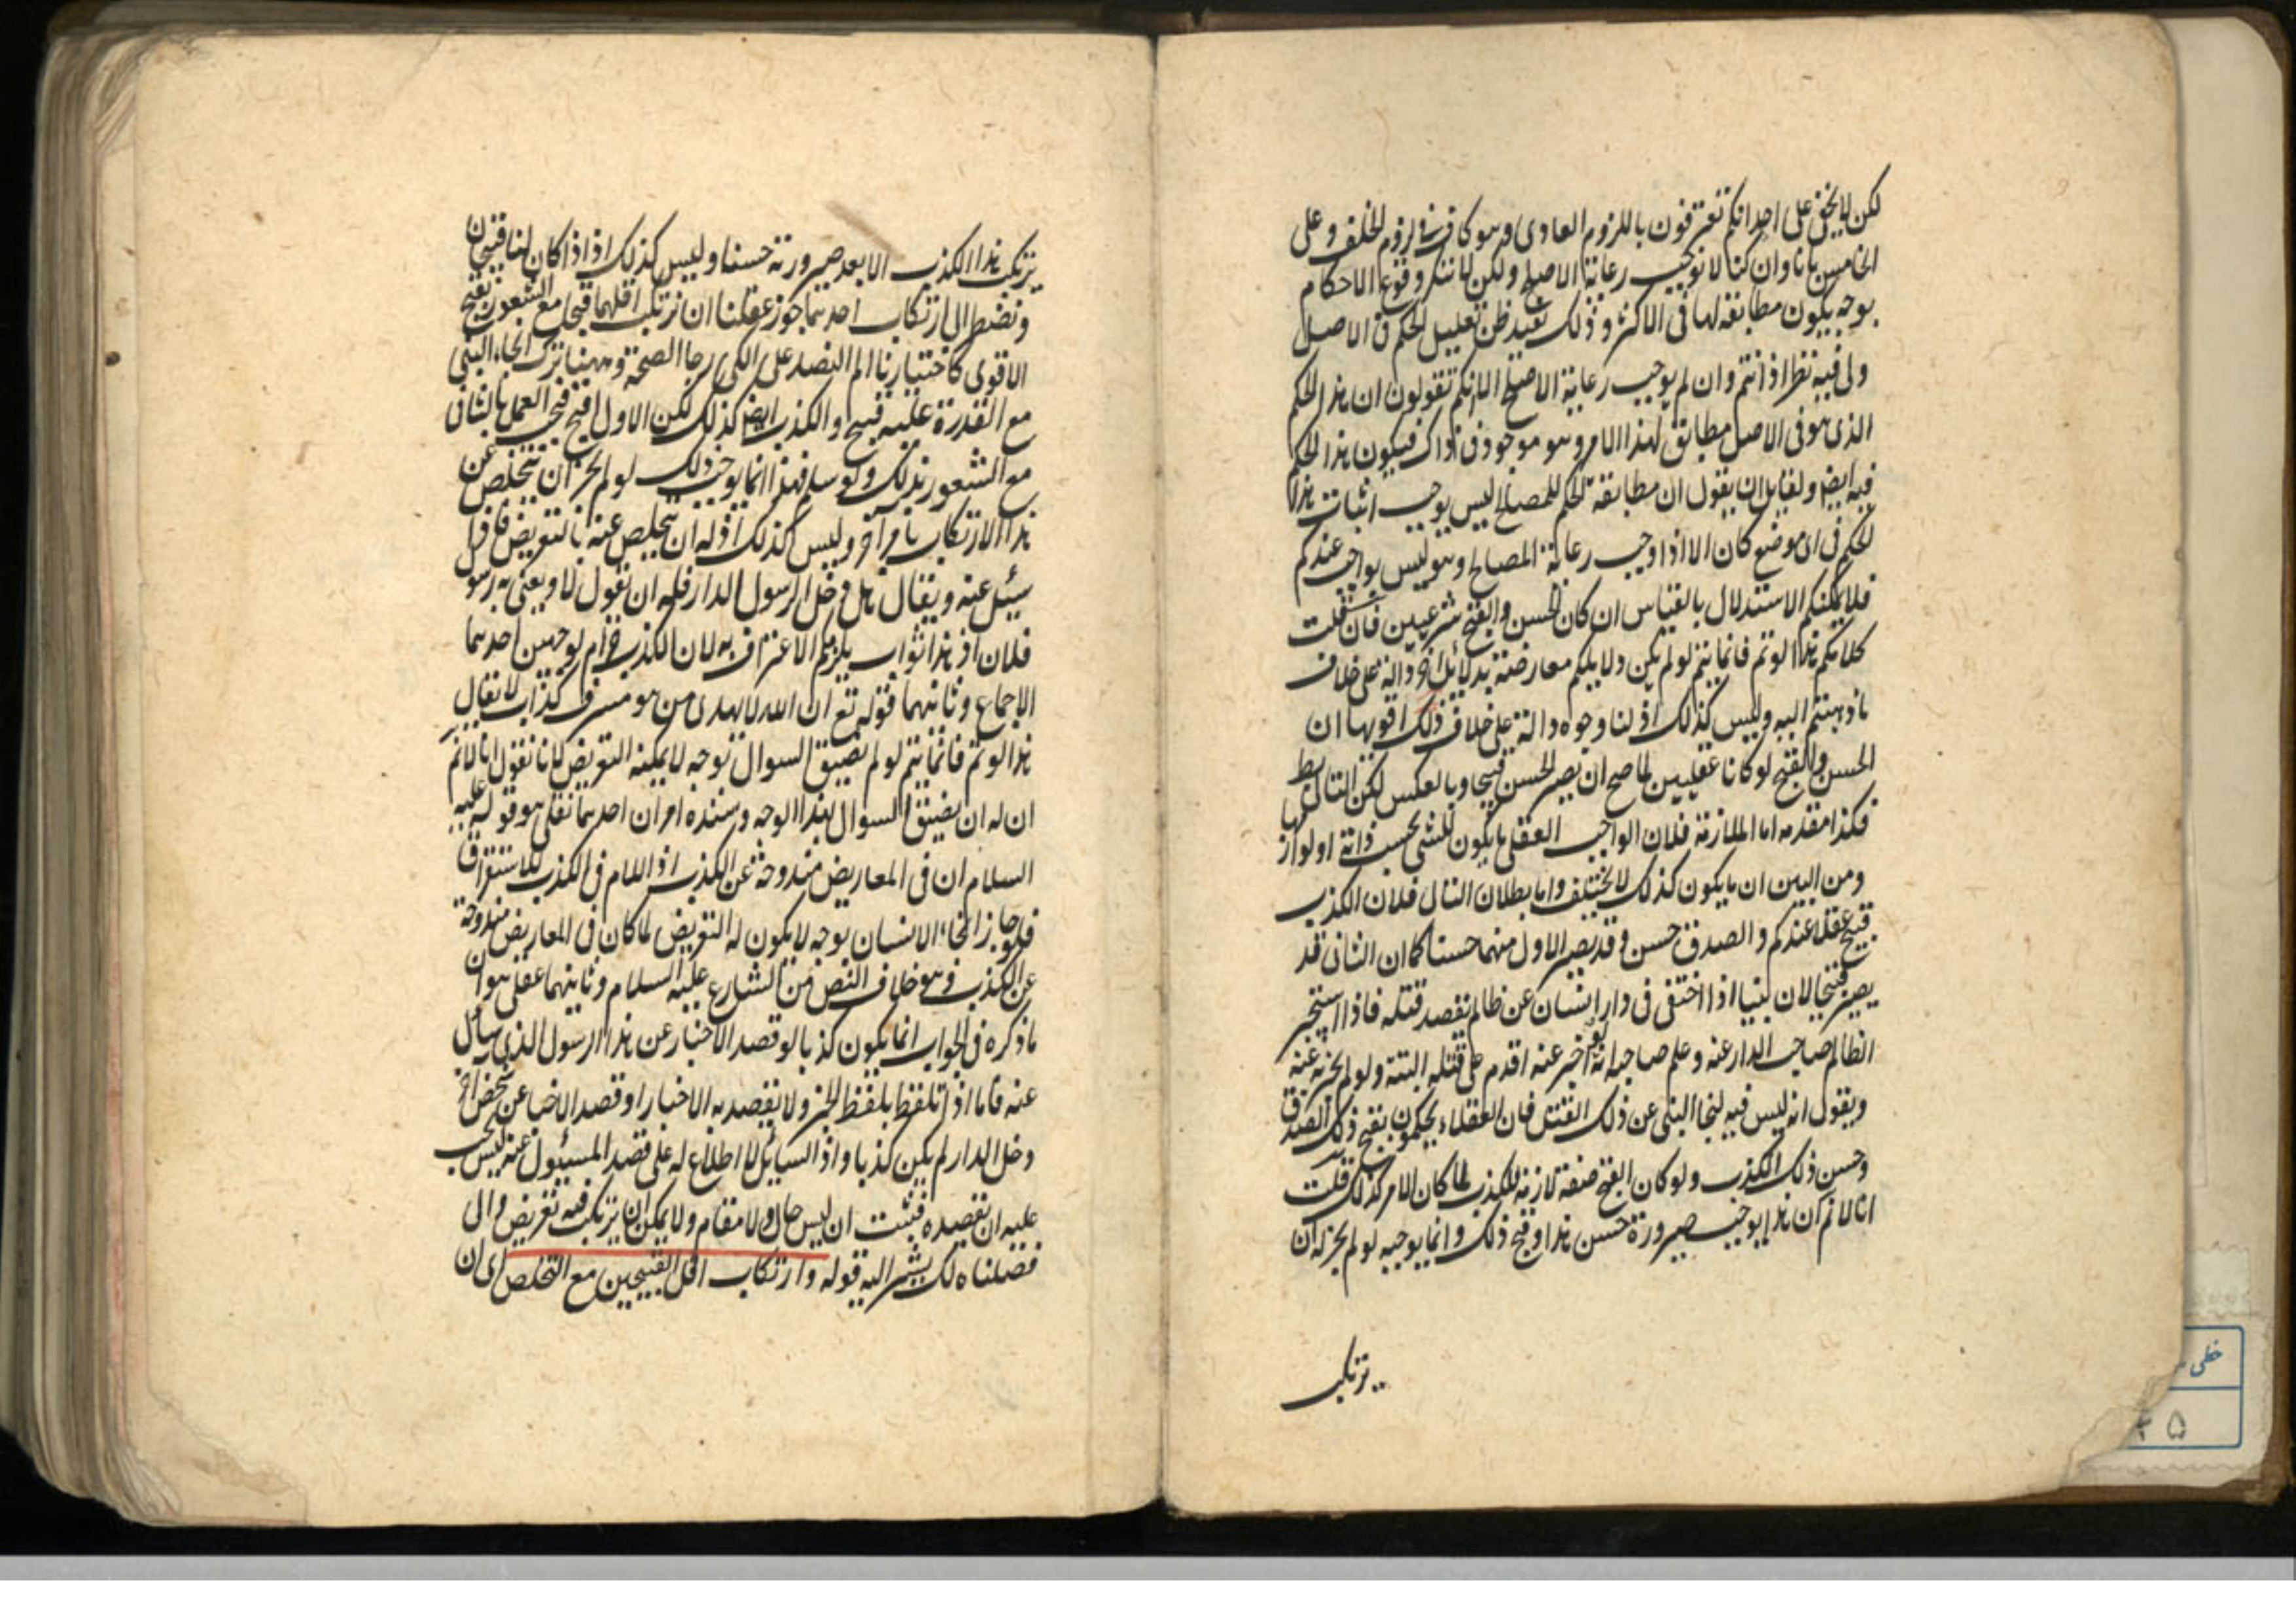 لكن لا يخفى على احد انكم تعترفون باللزوم العادى وهو كاف فى لزوم الخلف وعلى
الخامس بانا وان كنا لا نوجب رعاية الاصلح ولكن لا ننكر وقوع الاحكام
بوجه يكون مطابقة لها فى الاكثر وذلك يفيد ظن تعليل الحكم فى الاصل
ولى فيه نظر اذ انتم وان لم يوجب رعاية الاصلح الا انكم تقولون ان هذا الحكم
الذى هو فى الاصل مطابق لهذا الامر وهو موجود فى ذاك فيكون هذا الحكم
فيه ايضا ولقايل ان يقول ان مطابقة الحكم للمصالح ليس يوجب اثبات هذا
الحكم فى اى موضع كان الا اذا وجب رعاية المصالح وهو ليس بواجب عندكم
فلا يمكنكم الاستدلال بالقياس ان كان الحسن والقبح شرعيين فان قلت
كلامكم هذا لو تم فانما يتم لو لم يكن دلايلكم معارضة بدلائل اخر دالة على خلاف
ما ذهبتم اليه وليس كذلك اذ لنا وجوه دالة على خلاف ذلك اقويها ان
الحسن والقبح لو كانا عقليين لما صح ان يصير الحسن قبيحا وبالعكس لكن التالى بط
فكذا مقدمه اما الملازمة فلان الواجب العقلى ما يكون للشى بحسب ذاته او لوازمها
ومن البين ان ما يكون كذلك لا يختلف واما بطلان التالى فلان الكذب
قبيح عقلا عندكم والصدق حسن وقد يصير الاول منهما حسنا كما ان الثانى قد
يصير قبيحا لان نبيا اذا اختفى فى دار انسان عن ظالم يقصد قتله فاذا استخبر
الظالم صاحب الدار عنه وعلم صاحبه انه لو اخبر عنه اقدم على قتله البتة ولو لم يخبره عنه
ويقول انه ليس فيه لنجا النبى عن ذلك القتل فان العقلاء يحكمون بقبح ذلك الصدق
وحسن ذلك الكذب ولو كان القبح صفة لازمة للكذب لما كان الامر كذلك قلت
انا لا نم ان هذا يوجب صيرورة حسن هذا وقبح ذلك وانما يوجبه لو لم يجز له ان
يرتكب
يرتكب هذا الكذب الا بعد صيرورته حسنا وليس كذلك اذ اذا كان لنا قبيحان
ونضطر الى ارتكاب احدهما جوز عقلنا ان نرتكب اقلهما قبحا مع الشعور بقبح
الاقوى كاختيارنا الم الفصد على الكى رجا الصحة وههنا ترك انجاء النبى
مع القدرة عليه قبيح والكذب ايضا كذلك لكن الاول اقبح فيجب العمل بالثانى
مع الشعور بذلك ولو سلم فهذا انما يوجب ذلك لو لم يجز ان يتخلص عن
هذا الارتكاب بامر آخر وليس كذلك اذ له ان يتخلص عنه بالتعريض فاذا
سئل عنه ويقال هل دخل الرسول الدار فله ان يقول لا ويعنى به رسول
فلان اذ هذا ثواب يلزمكم الاعتراف به لان الكذب حرام لوجهين احدهما
الاجماع وثانيهما قوله تع ان الله لا يهدى من هو مسرف كذاب لا يقال
هذا لو تم فانما يتم لو لم يضيق السوال بوجه لا يمكنه التعريض لانا نقول انا لا نم
ان له ان يضيق السوال بهذا الوجه وسنده امران احدهما نقلى هو قوله عليه
السلام ان فى المعاريض مندوحة عن الكذب اذ اللام فى الكذب للاستغراق
فلو جاز الجاء الانسان بوجه لا يكون له التعريض لما كان فى المعاريض مندوحة
عن الكذب وهو خلاف النص من الشارع عليه السلام وثانيهما عقلى هو ان
ما ذكره فى الجواب انما يكون كذبا لو قصد الاخبار عن هذا الرسول الذى سأل
عنه فاما اذا تلفظ بلفظ الخبر ولا يقصد به الاخبار او قصد الاخبار عن شخص آخر
دخل الدار لم يكن كذبا واذ السايل لا اطلاع له على قصد المسئول عنه ليس يجب
عليه ان يقصده فثبت ان ليس حال ولا مقام ولا يمكن ان يرتكب فيه تعريض والى
فصلناه لك يشير اليه قوله وارتكاب اقل القبيحين مع التخلص اى ان
خطى
۵